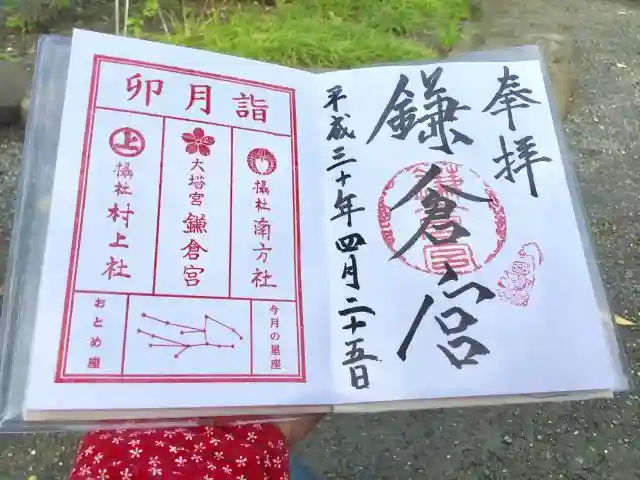 奉拝
鎌倉宮
平成三十年四月二十五日
卯月詣
摂社 南方社
大塔宮 鎌倉宮
摂社 村上社
上
今月の星座
おとめ座